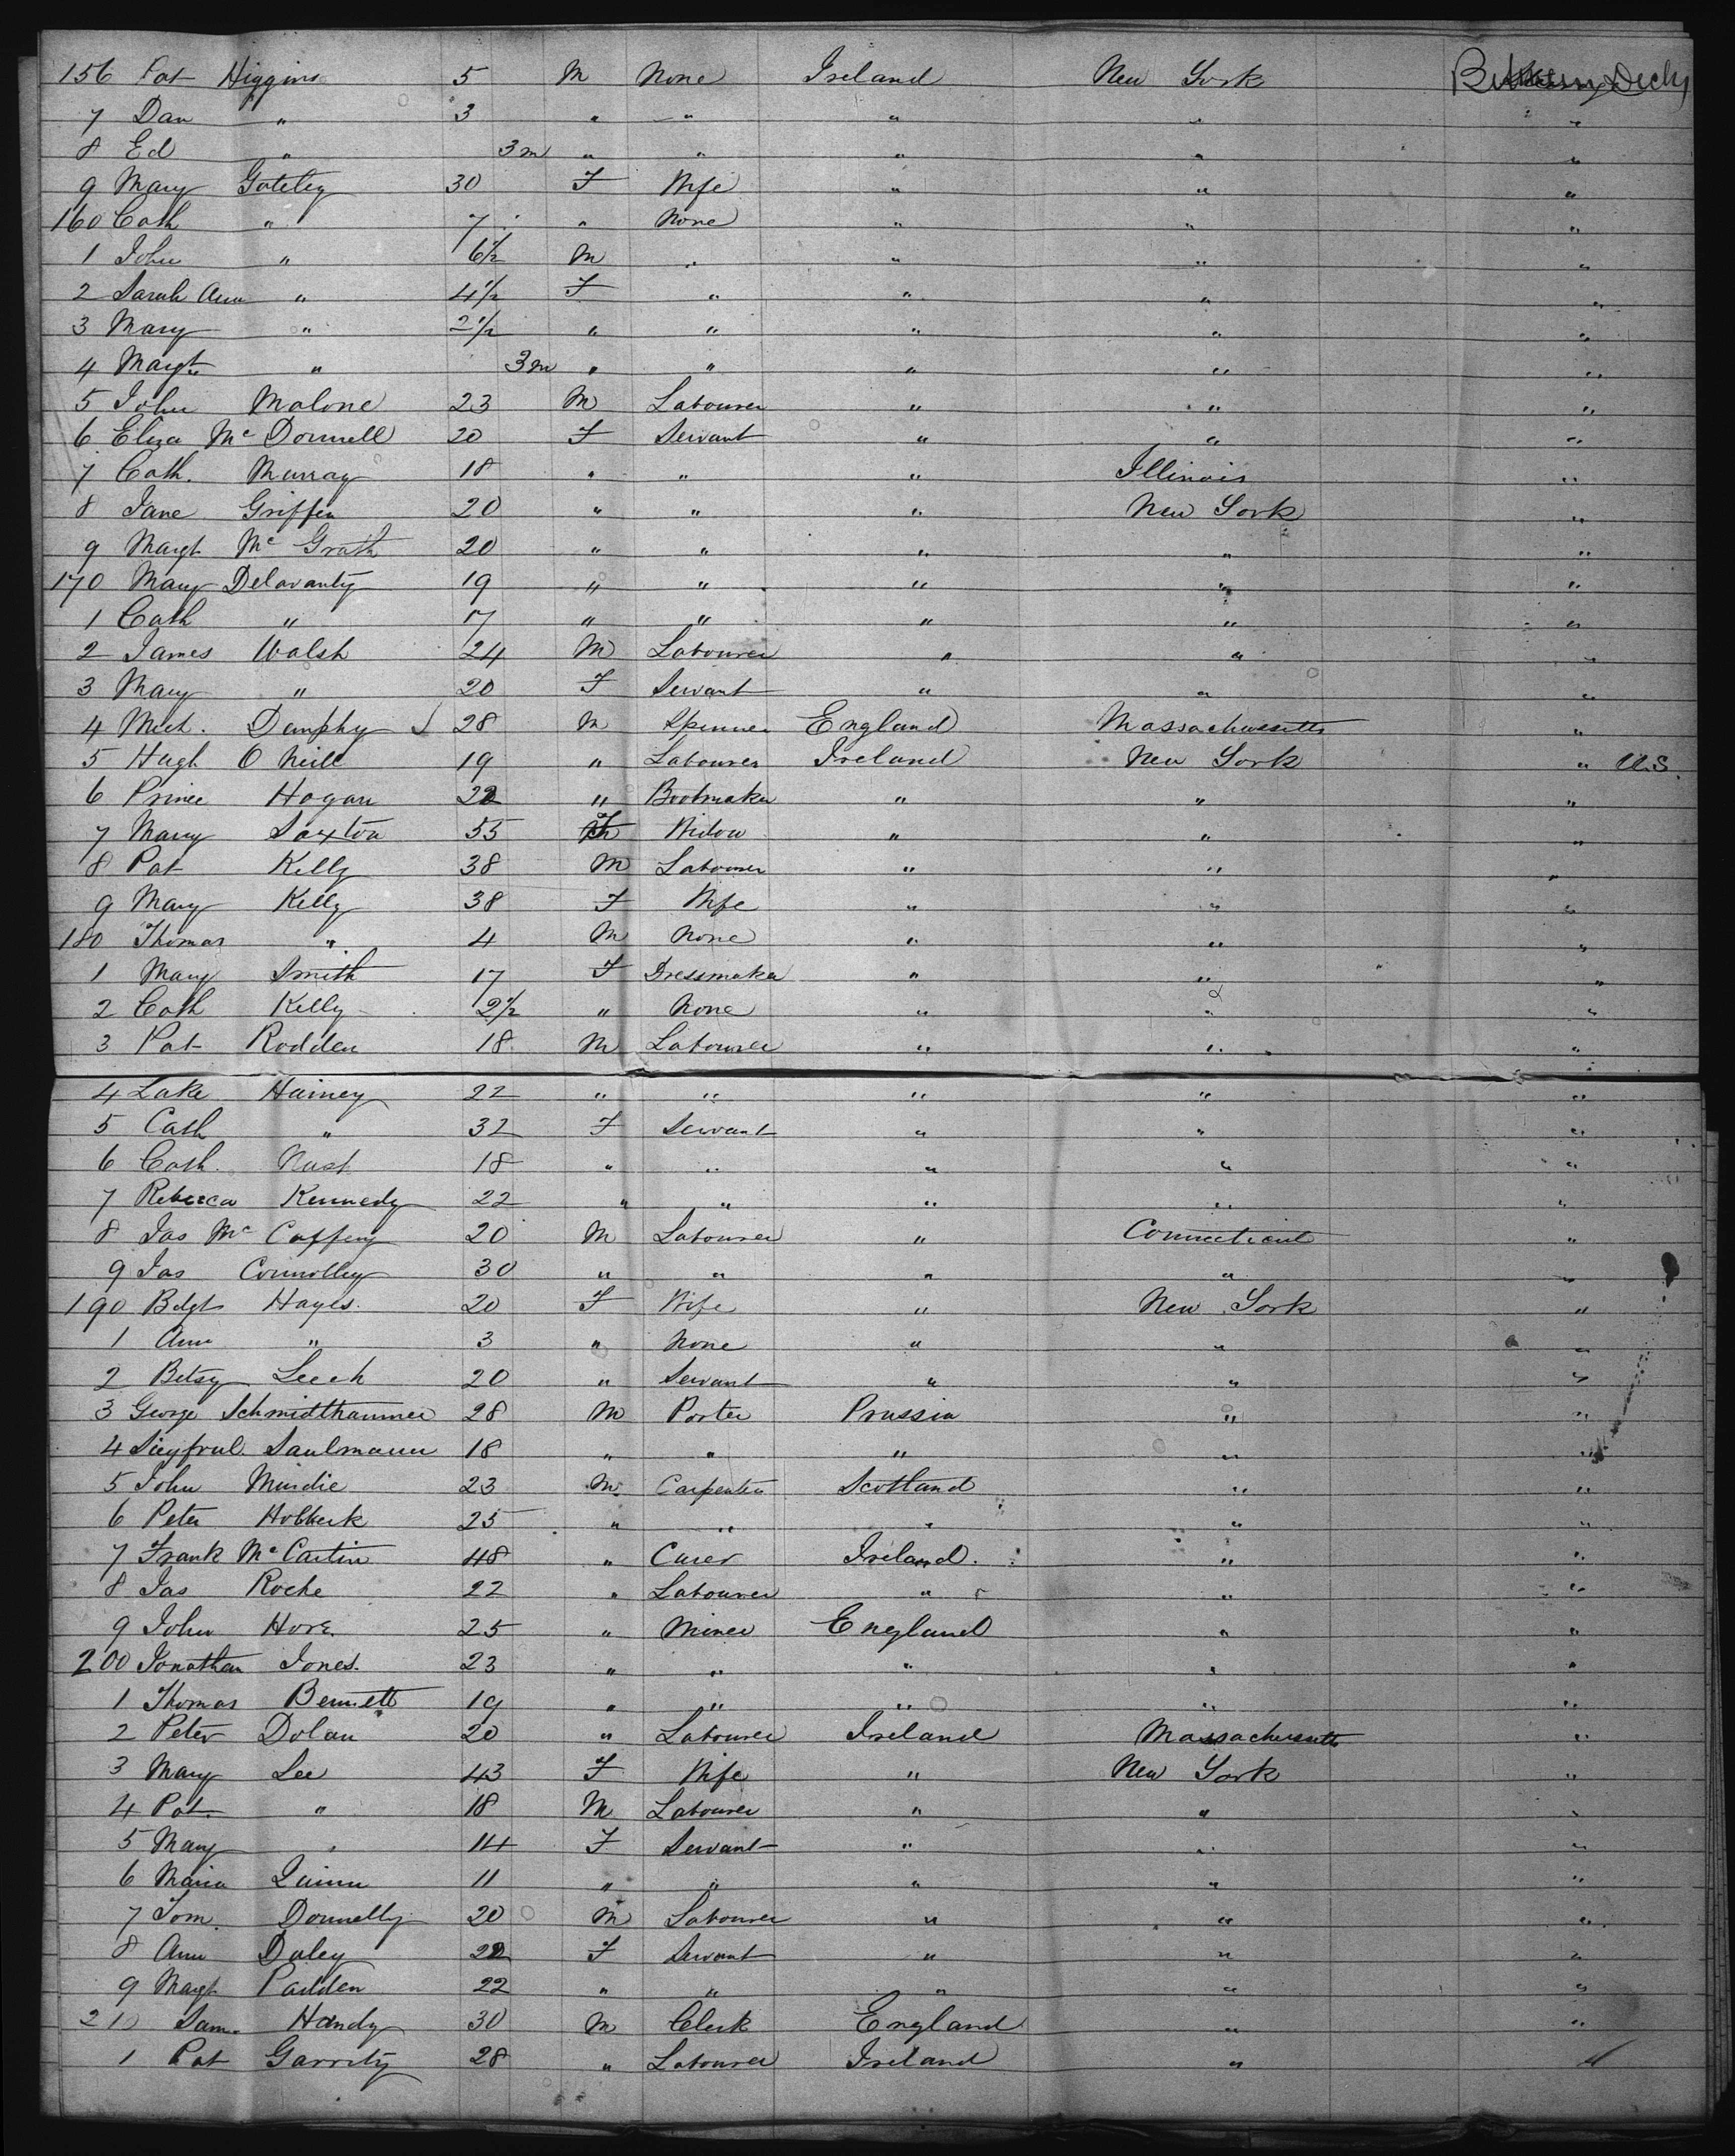 156 Pat Higgins 5 M None Ireland New York Between Decks
7 Dan " 3 " " " " "
8 Ed " 3m " " " " "
9 Mary Gateley 30 F Wife " " "
160 Cath " 7 " None " " "
1 John " 6½ M " " " "
2 Sarah Ann " 4½ F " " " "
3 Mary " 2½ " " " " "
4 Margt " 3m " " " " "
5 John Malone 23 M Labourer " " "
6 Eliza Mc Donnell 20 F Servant " " "
7 Cath. Murray 18 " " " Illinois "
8 Jane Griffen 20 " " " New York "
9 Margt Mc Grath 20 " " " " "
170 Mary Delavanty 19 " " " " "
1 Cath " 17 " " " " "
2 James Walsh 24 M Labourer " " "
3 Mary " 20 F Servant " " "
4 Mich. Dunphy 28 M Spinner England Massachussetts "
5 Hugh O Neill 19 " Labourer Ireland New York " U.S.
6 Prince Hogan 22 " Bootmaker " " "
7 Mary Saxton 55 F Widow " " "
8 Pat Kelly 38 M Labourer " " "
9 Mary Kelly 38 F Wife " " "
180 Thomas " 4 M None " " "
1 Mary Smith 17 F Dressmaker " " "
2 Cath Kelly 2½ " None " " "
3 Pat Rodden 18 M Labourer " " "
4 Lake Hainey 22 " " " " "
5 Cath " 32 F Servant " " "
6 Cath. Nast 18 " " " " "
7 Rebecca Kennedy 22 " " " " "
8 Jas Mc Caffery 20 M Labourer " Connecticut "
9 Jas Connolley 30 " " " " "
190 Bdgt Hayes 20 F Wife " New York "
1 Ann " 3 " None " " "
2 Betsy Leech 20 " Servant " " "
3 George Schmidthammer 28 M Porter Prussia " "
4 Saulmann 18 " " " " "
5 John Mindie 23 M Carpenter Scotland " "
6 Peter Hobkerk 25 " " " " "
7 Frank Mc Cartin 48 " Carer Ireland " "
8 Jas Roche 22 " Labourer " " "
9 John Hore 25 " Miner England " "
200 Jonathan Jones 23 " " " " "
1 Thomas Bennett 19 " " " " "
2 Peter Dolan 20 " Labourer Ireland Massachussetts "
3 Mary Lee 43 F Wife " New York "
4 Pat " 18 M Labourer " " "
5 Mary " 14 F Servant " " "
6 Maria Quinn 11 " " " " "
7 Tom. Donnelly 20 M Labourer " " "
8 Ann Daley 22 F Servant " " "
9 Margt Padden 22 " " " " "
210 Sam. Handy 30 M Clerk England " "
1 Pat Garrity 28 " Labourer Ireland " "